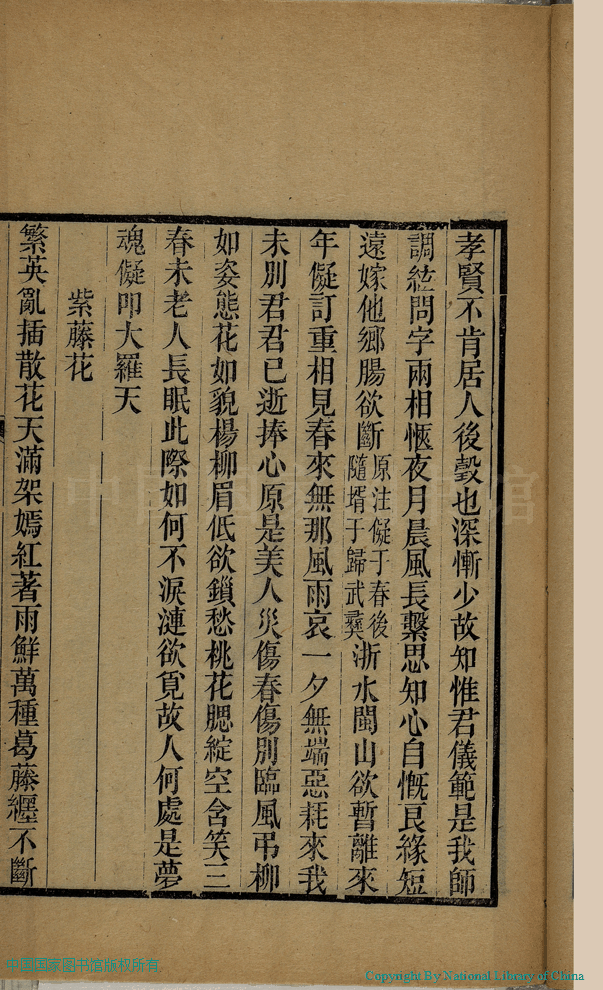 孝賢不肯居人後瑴也深慚少故知惟君儀範是我師
調絃問字兩相愜夜月晨風長繫思知心自慨良緣短
遠嫁他鄉腸欲斷原注儗于春後隨壻于歸武彞浙水閩山欲暫離來
年儗訂重相見春來無那風雨哀一夕無端惡耗來我
未別君君已逝捧心原是美人災傷春傷別臨風弔柳
如姿態花如貌楊柳眉低欲鎖愁桃花腮綻空含笑三
春未老人長眠此際如何不淚漣欲覓故人何處是夢
魂儗叩大羅天
紫藤花
繁英亂插散花天滿架嫣紅著雨鮮萬種葛藤纏不斷
中国国家图书馆
中国国家图书馆版权所有
Copyright By National Library of China